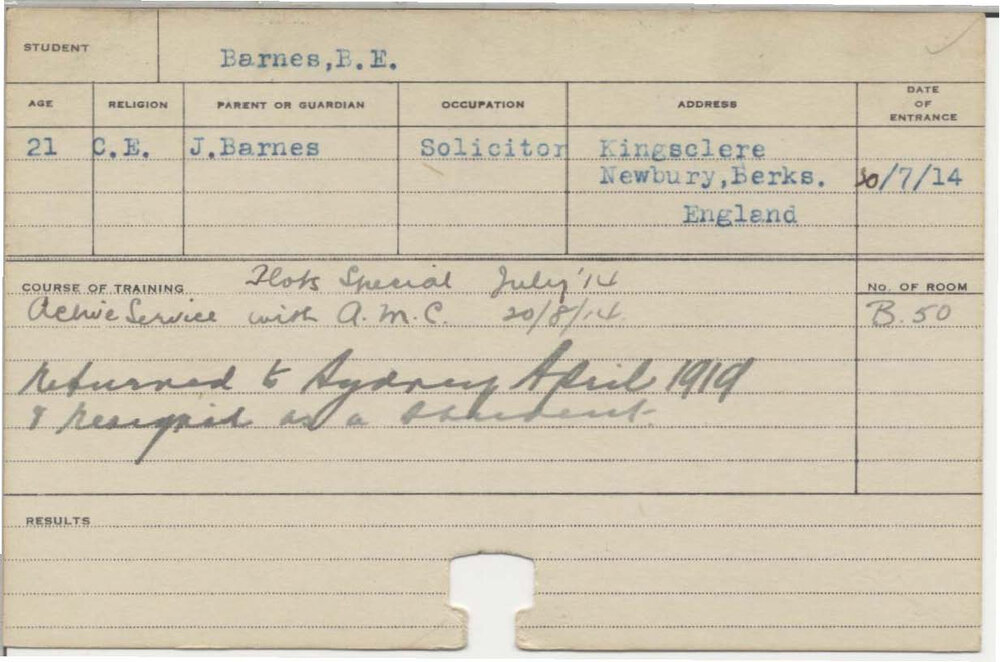 STUDENT
Barnes,B.E.
AGE RELIGION PARENT OR GUARDIAN OCCUPATION ADDRESS DATE OF ENTRANCE
21 C.E. J.Barnes Solicitor Kingsclere
Newbury,Berks. 30/7/14
England
COURSE OF TRAINING Special July '14 No. OF ROOM
Active Service with A.M.C. 20/8/14 B.50
Returned to Sydney April 1919
& resigned as a student.
RESULTS